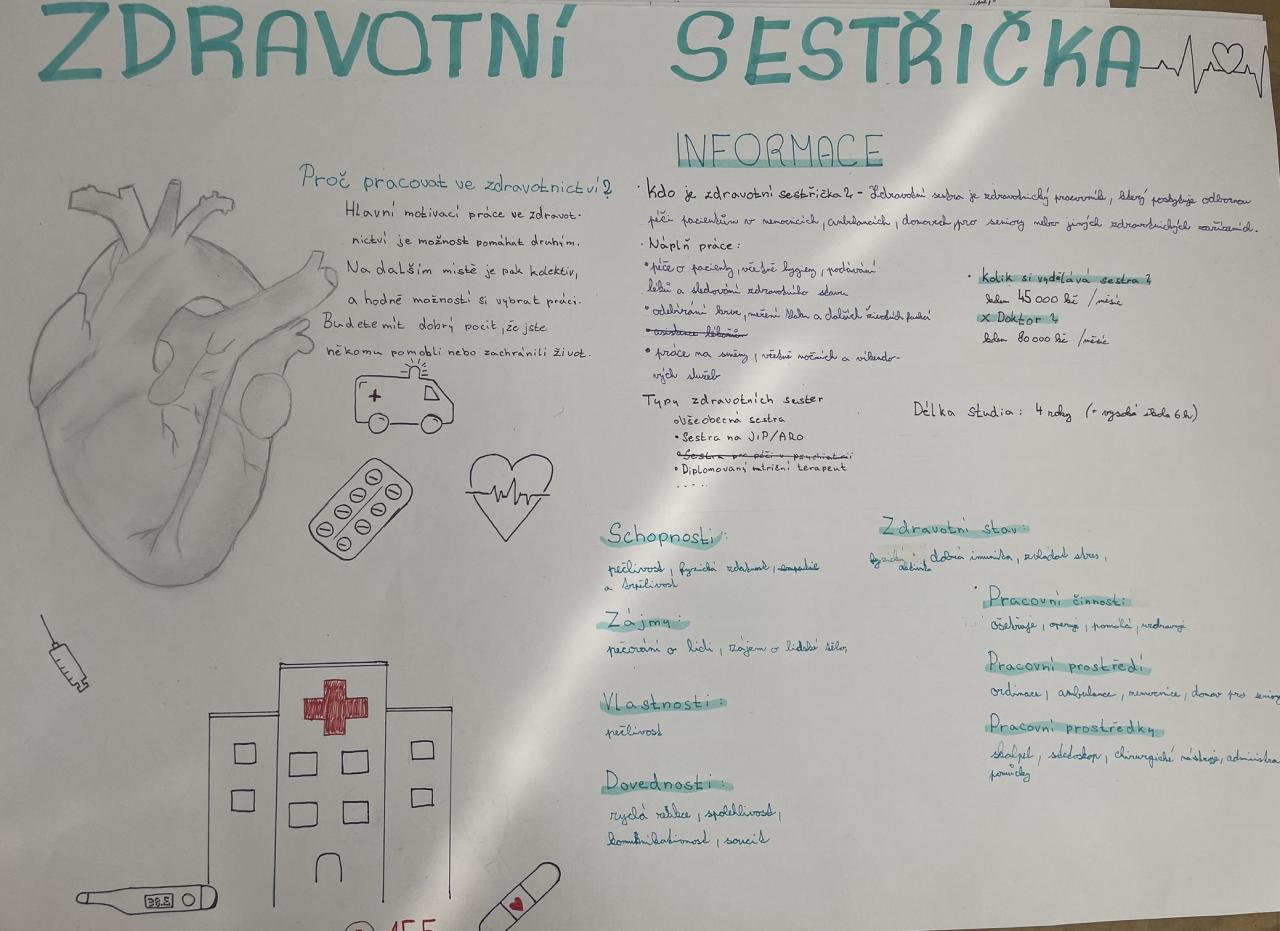 ZDRAVOTNÍ SESTŘIČKA
Proč pracovat ve zdravotnictví?
Hlavní motivací práce ve zdravot-
nictví je možnost pomáhat druhým.
Na dalším místě je pak kolektiv,
a hodně možností si vybrat práci.
Budete mít dobrý pocit, že jste
někomu pomohli nebo zachránili život.
INFORMACE
• Kdo je zdravotní sestřička? - Zdravotní sestra je zdravotnický pracovník, který poskytuje odbornou
péči pacientům v nemocnicích, ambulancích, domovech pro seniory nebo jiných zdravotnických zařízeních.
• Náplň práce:
• péče o pacienty, včetně hygieny, podávání
léků a sledování zdravotního stavu
• odebírání krve, měření tlaku a dalších životních funkcí
• asistence lékařům
• práce na směny, včetně nočních a víkendo-
vých služeb
Typy zdravotních sester
všeobecná sestra
• Sestra na JIP/ARO
• Sestra pro péči v psychiatrii
• Diplomovaný nutriční terapeut
....
• Kolik si vydělává sestra?
kolem 45 000 kč /měsíc
x Doktor?
kolem 80 000 kč /měsíc
Délka studia: 4 roky (+ vysoká škola 6 let)
Schopnosti:
pečlivost, fyzická zdatnost, empatie
a trpělivost
Zájmy:
pečování o lidi, zájem o lidské tělo,
Vlastnosti:
pečlivost
Dovednosti:
rychlá reakce, spolehlivost,
komunikativnost, soucit
Zdravotní stav:
fyzická aktivita, dobrá imunita, zvládat stres,
• Pracovní činnosti
ošetřuje, operuje, pomáhá, uzdravuje
Pracovní prostředí
ordinace, ambulance, nemocnice, domov pro seniory
Pracovní prostředky
skalpel, stetoskop, chirurgické nástroje,
pomůcky
38.3
155